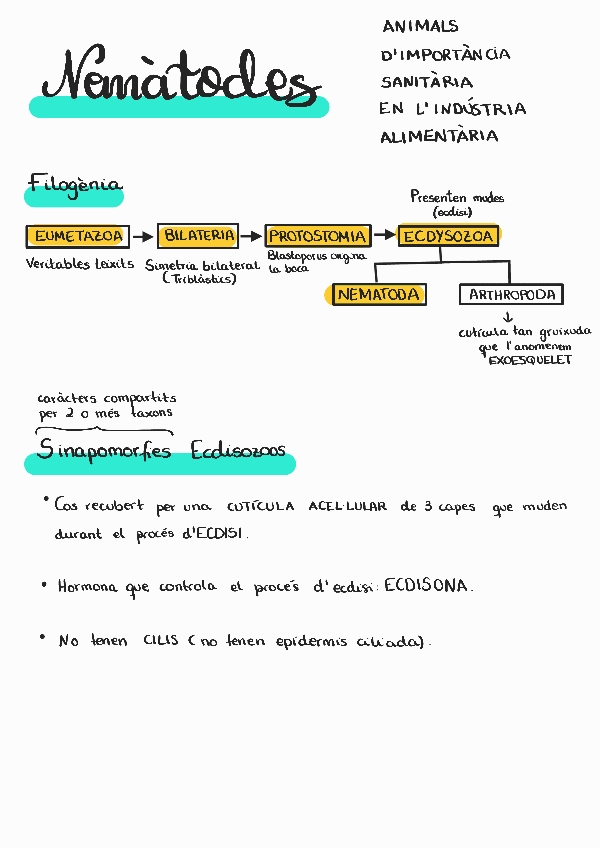 Nemàtodes
ANIMALS
D'IMPORTÀNCIA
SANITÀRIA
EN L'INDÚSTRIA
ALIMENTÀRIA
Filogènia
Presenten mudes
(ecdisi)
EUMETAZOA → BILATERIA → PROTOSTOMIA → ECDYSOZOA
Veritables teixits
Simetria bilateral
(Triblàstics)
Blastoporus origina
la boca
NEMATODA
ARTHROPODA
cutícula tan gruixuda
que l'anomenem
EXOESQUELET
caràcters compartits
per 2 o més taxons
Sinapomorfies Ecdisozoos
• Cos recubert per una CUTÍCULA ACEL·LULAR de 3 capes que muden
durant el procés d'ECDISI.
• Hormona que controla el procés d'ecdisi: ECDISONA.
• No tenen CILIS (no tenen epidermis ciliada).